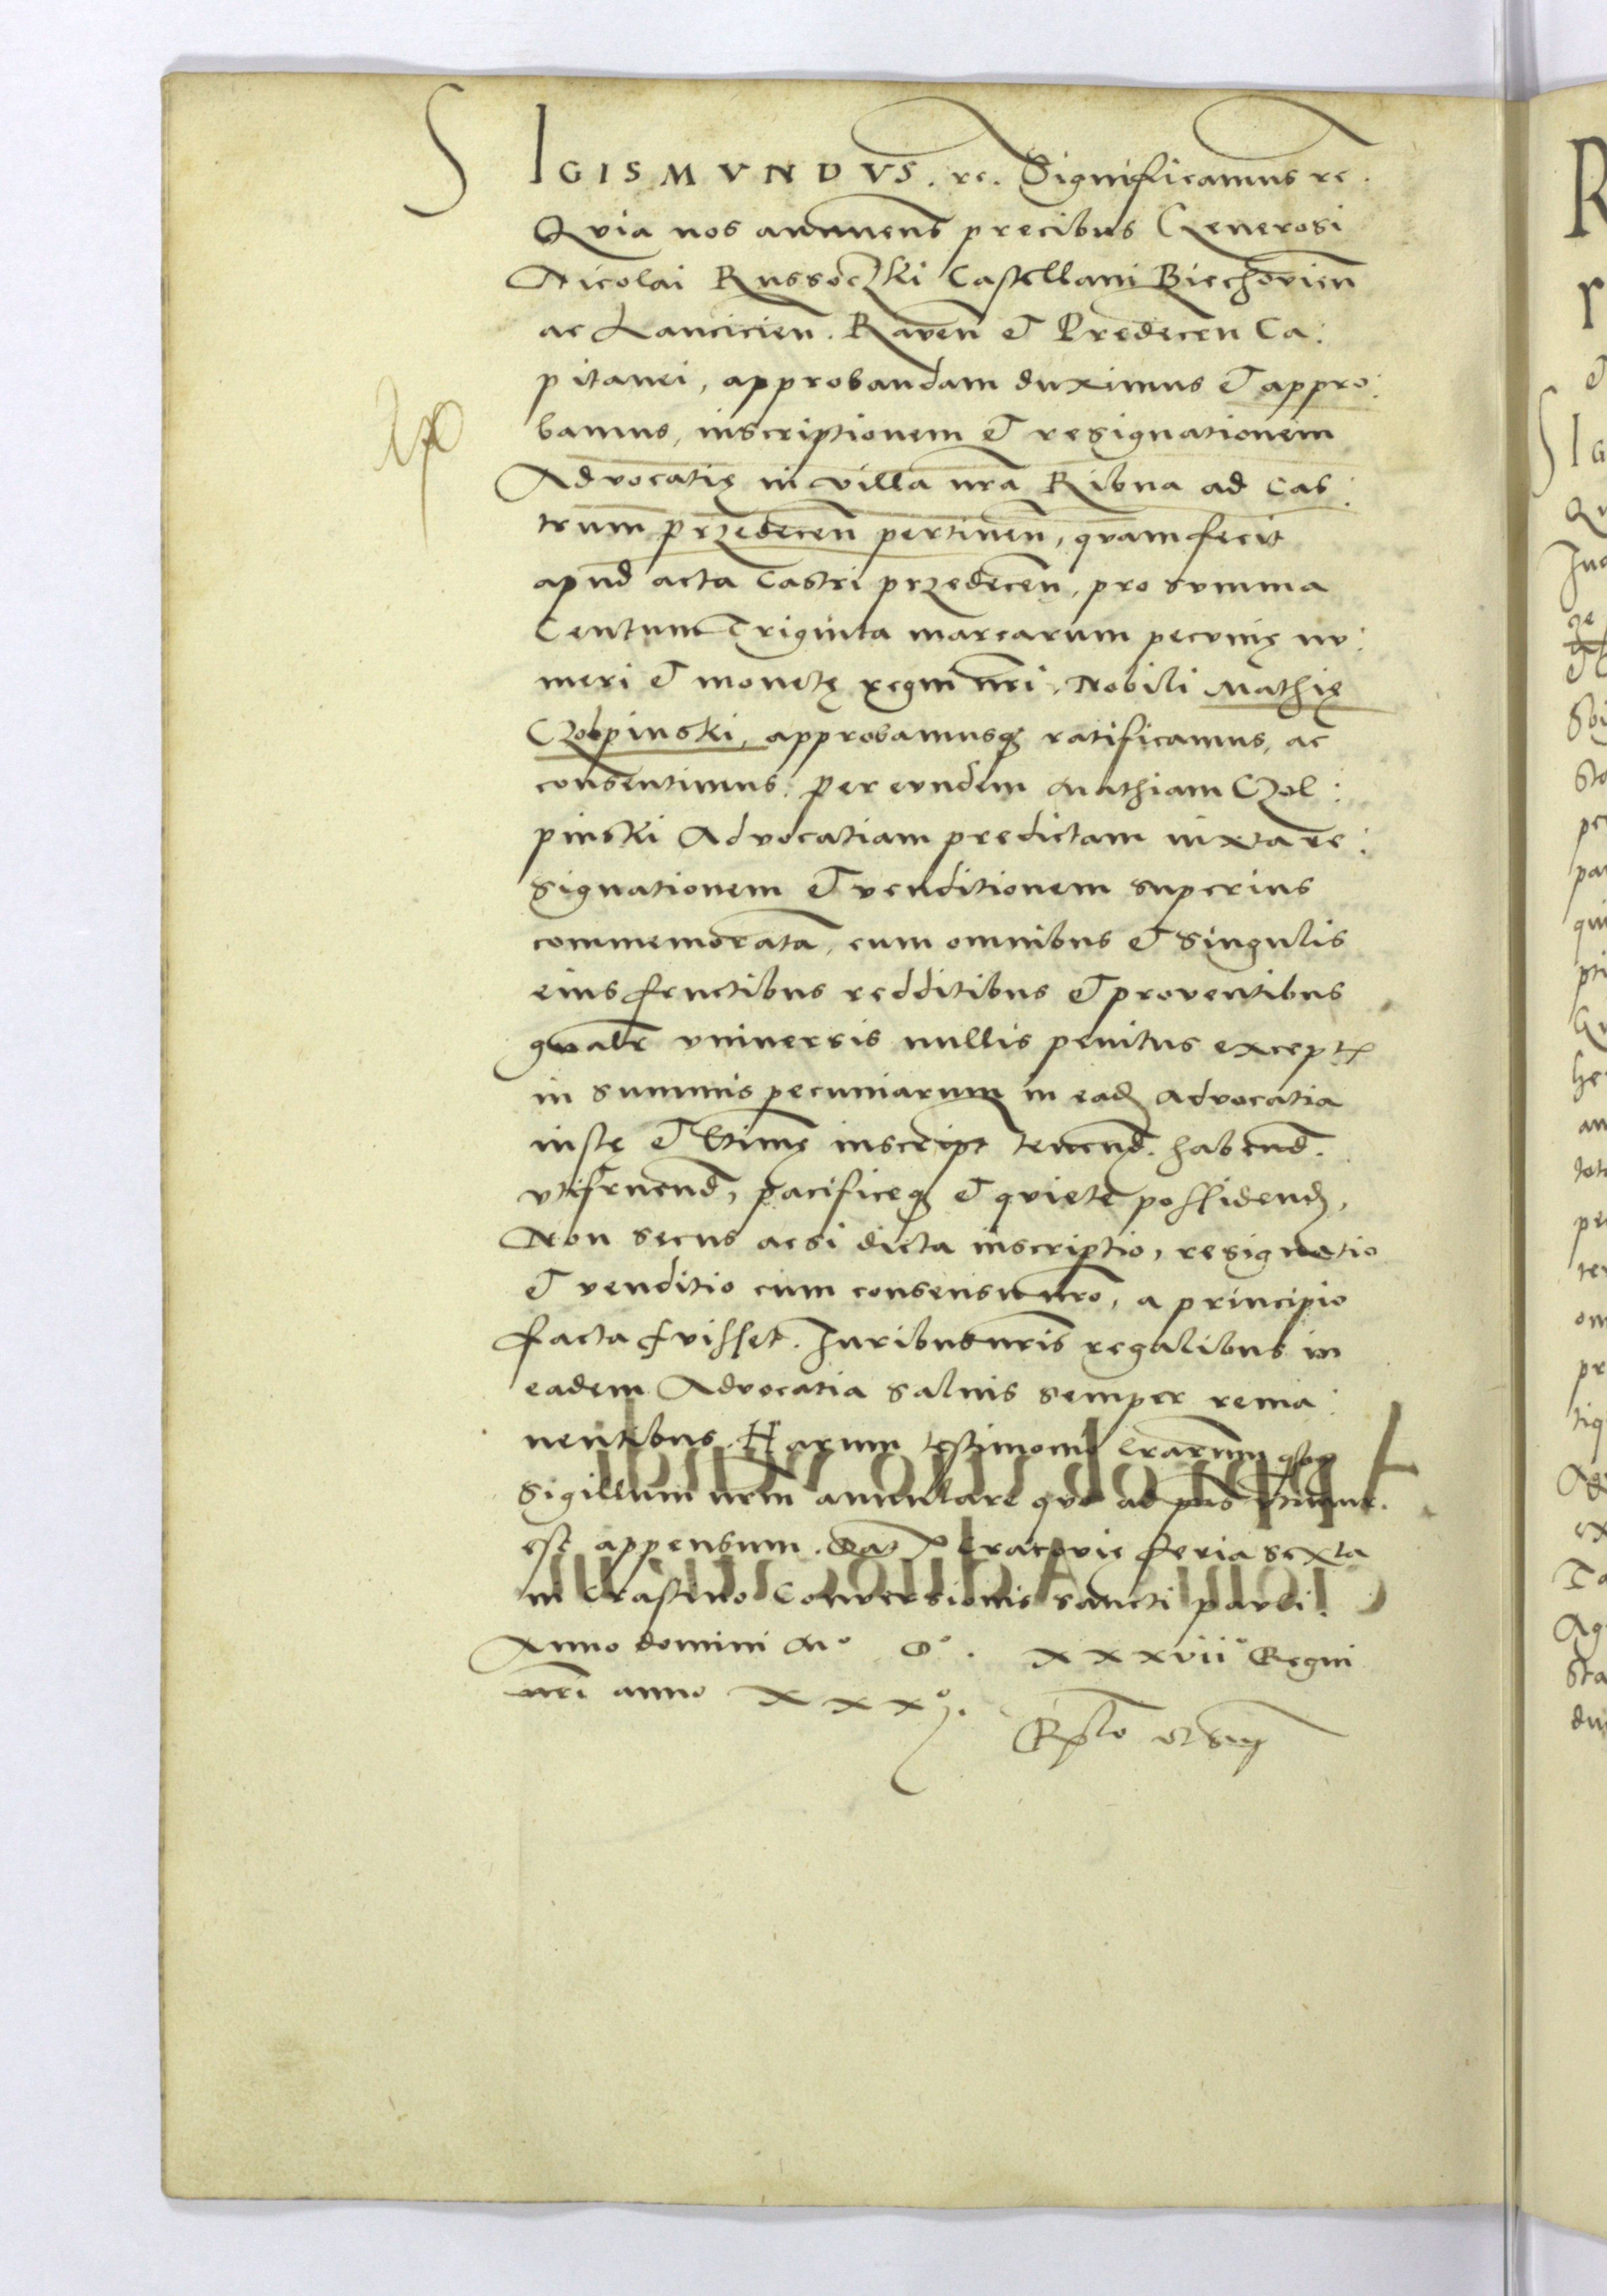 SIGISMVNDVS. rc. Significamus rc.
Qvia nos annuens precibus Generosi
Nicolai Russoczki Castellani Biechovien
ac Lancicien. Raven et Predecen Ca:
pitanei, approbandam duximus et appro:
bamus, inscriptionem et resignationem
Advocatię in villa nra Ribna ad Cas:
trum przedecen pertinen, qvam fecit
apud acta Castri przedecen, pro summa
Centum Triginta marcarum pecunię nu:
meri et monetę regni nri, Nobili Mathię
Czolpinski, approbamusq ratificamus, ac
consentimus: per eundem Mathiam Czol:
pinski Advocatiam predictam iuxta re:
signationem et venditionem superius
commemorata, cum omnibus et singulis
eius fructibus redditibus et proventibus
gnalr universis nullis penitus except
in summis pecuniarum in ead advocatia
iustę et ltimę inscript tenend. habend.
utifruend, pacificeq et quiete possidend,
Non secus acsi dicta inscriptio, resignatio
et venditio cum consensu nro, a principio
facta fvisset. Iuribus nris regalibus in
eadem Advocatia salvis semper rema:
nentibus. Harum testimonio lrarum qbus
Sigillum nrm annulare quo ad pns utimur.
est appensum. Dat Cracovie feria sexta
in Crastino Conversionis sancti pavli.
Anno domini Mº Dº. xxxviiº Regni
nri anno xxxjº.